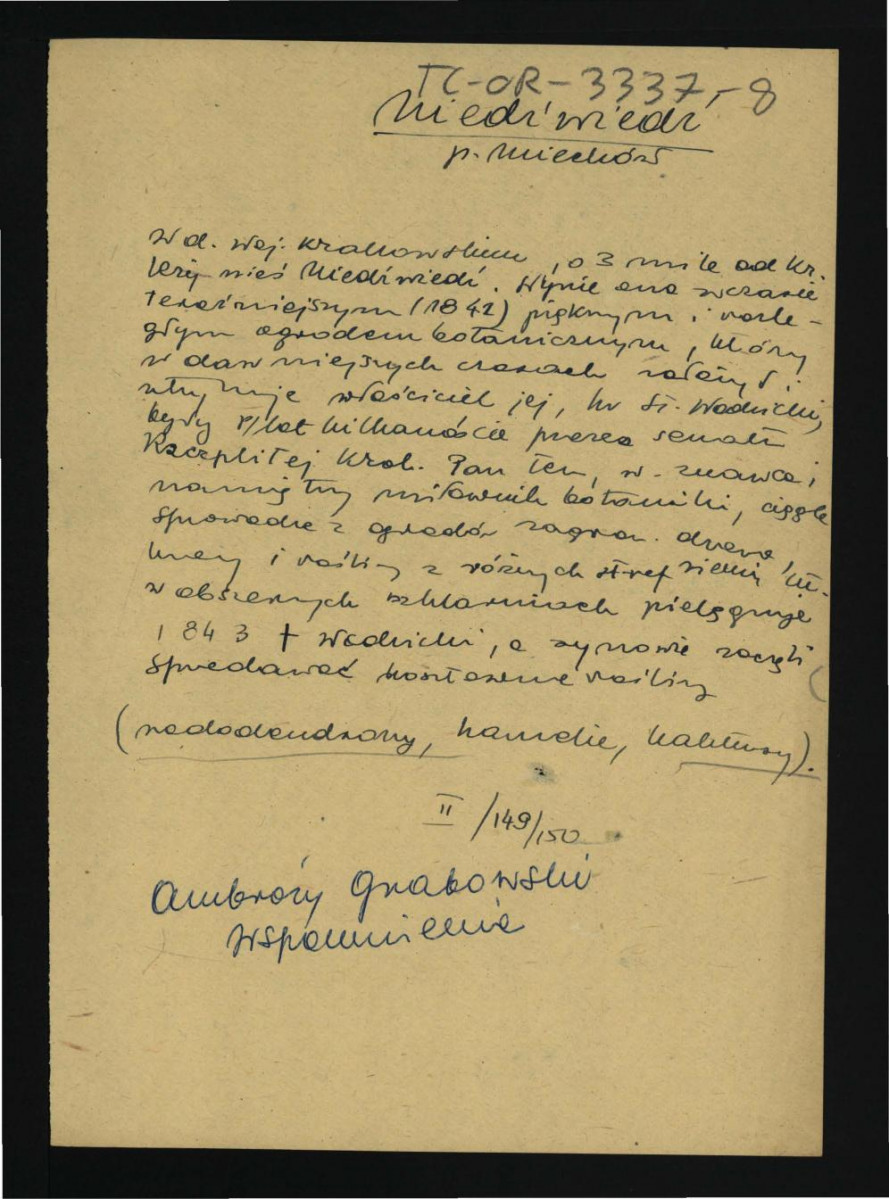 TC-OR-3337,-8
Niedźwiedź
p. Miechów
W d. woj. krakowskiem, o 3 mile od Kr.
leży wieś Niedźwiedź. Słynie ona w czasie
teraźniejszym (1842) pięknym i rozle-
głym ogrodem botanicznym, który
w dawniejszych czasach założył i
utrzymuje właściciel jej, hr St. Wodzicki,
były p/lat kilkanaście prezes senatu
Rzczplitej Krak. Pan ten, w. znawca i
namiętny miłownik botaniki, ciągle
sprowadza z ogrodów zagran. drzewa,
krzewy i rośliny z różnych stref ziemi
w obszernych szklarniach pielęgnuje
1843 + Wodzicki, a synowie zaczęli
sprzedawać kosztowne rośliny
(rododendrony, kamelie, kaktusy).
II /149/150
Ambroży Grabowski
Wspomnienia